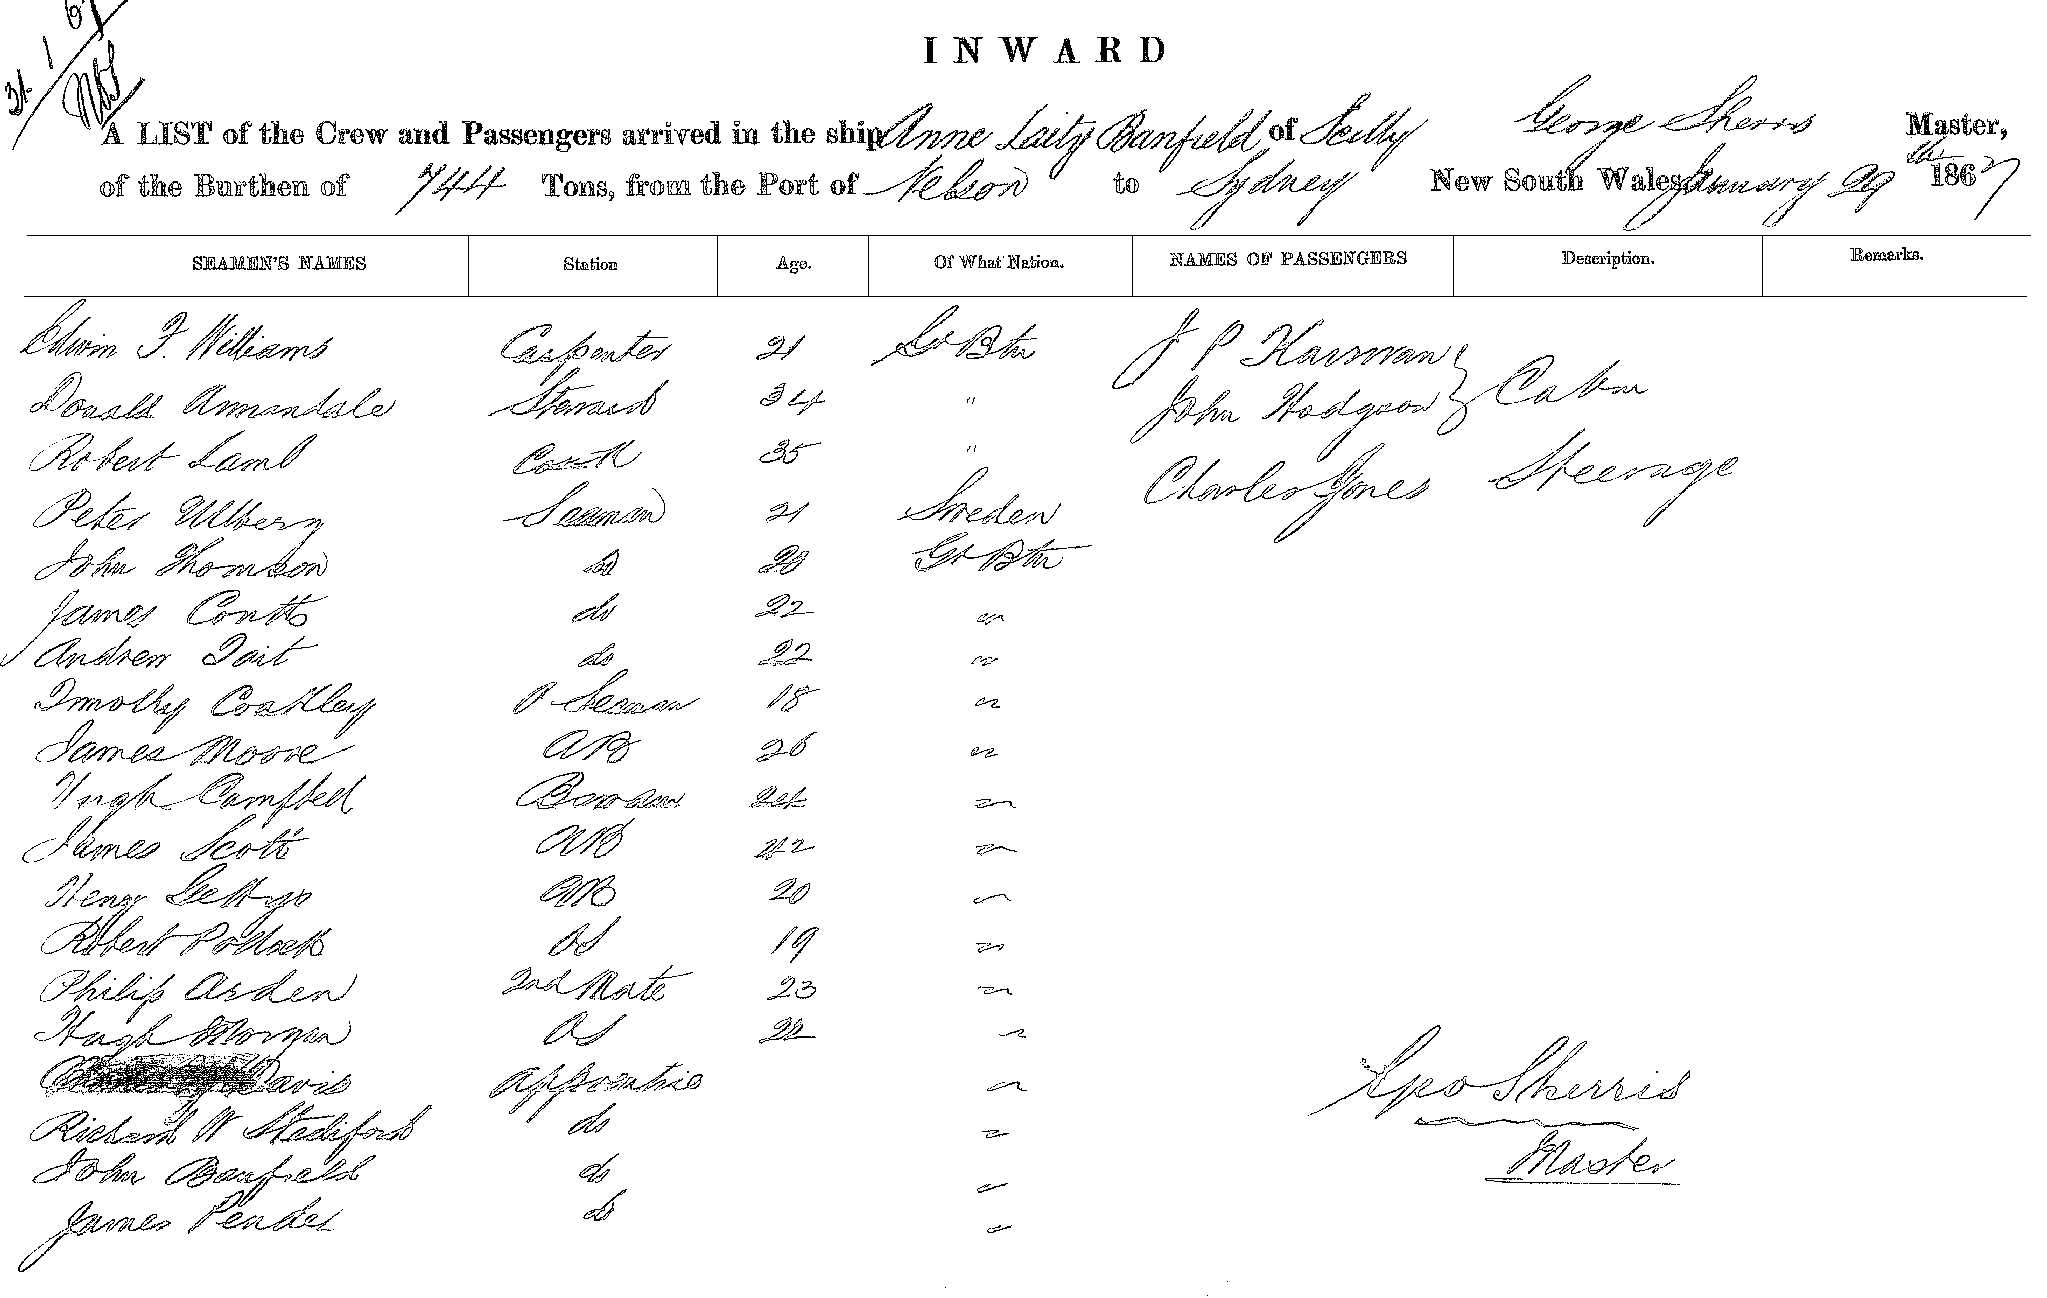 31/1/67
INWARD
A LIST of the Crew and Passengers arrived in the ship Anne Laity Banfield of Scilly George Sherris Master,
of the Burthen of 744 Tons, from the Port of Nelson to Sydney New South Wales January 29th 1867
SEAMEN'S NAMES Station Age. Of What Nation. NAMES OF PASSENGERS Description. Remarks.
Edwin F. Williams Carpenter 21 Gt Btn J P Harsman
Donald Annandale Steward 34 " John Hodgson Cabin
Robert Lamb Cook 35 "
Peter Ullberg Seaman 21 Sweden Charles Jones Steerage
John Thomson do 20 Gt Btn
James Coutts do 22 "
Andrew Tait do 22 "
Timothy Coakley O Seaman 18 "
James Moore AB 26 "
Hugh Campbell Bowswn 24 "
James Scott AB 42 "
Henry AB 20 "
Robert Pollock OS 19 "
Philip Arden 2nd Mate 23 "
Hugh Morgan OS 22 "
Davis Apprentice "
Richard W Stediford do "
John Banfield do "
James Pender do "
Geo Sherris
Master